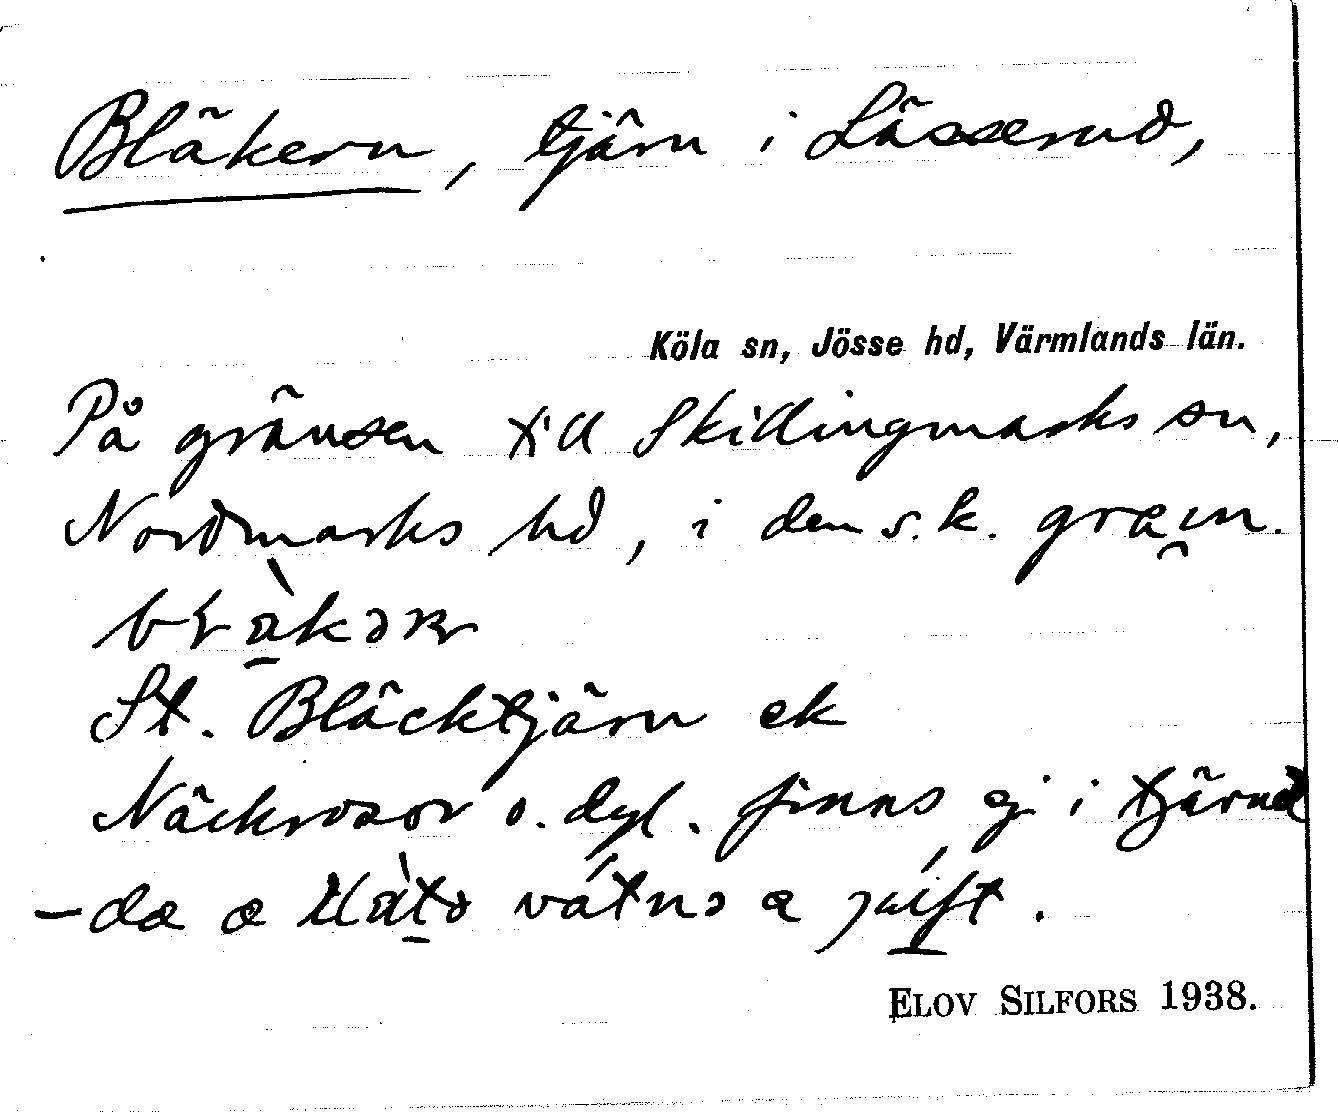 Bläkern, tjärn i Lässerud,
Köla sn, Jösse hd, Värmlands län.
På gränsen till Skillingmarks sn,
Nordmarks hd, i den s.k. 
St. Bläcktjärn ek
Näckrosor o. dyl. finns ej i tjärnet
ELOV SILFORS 1938.